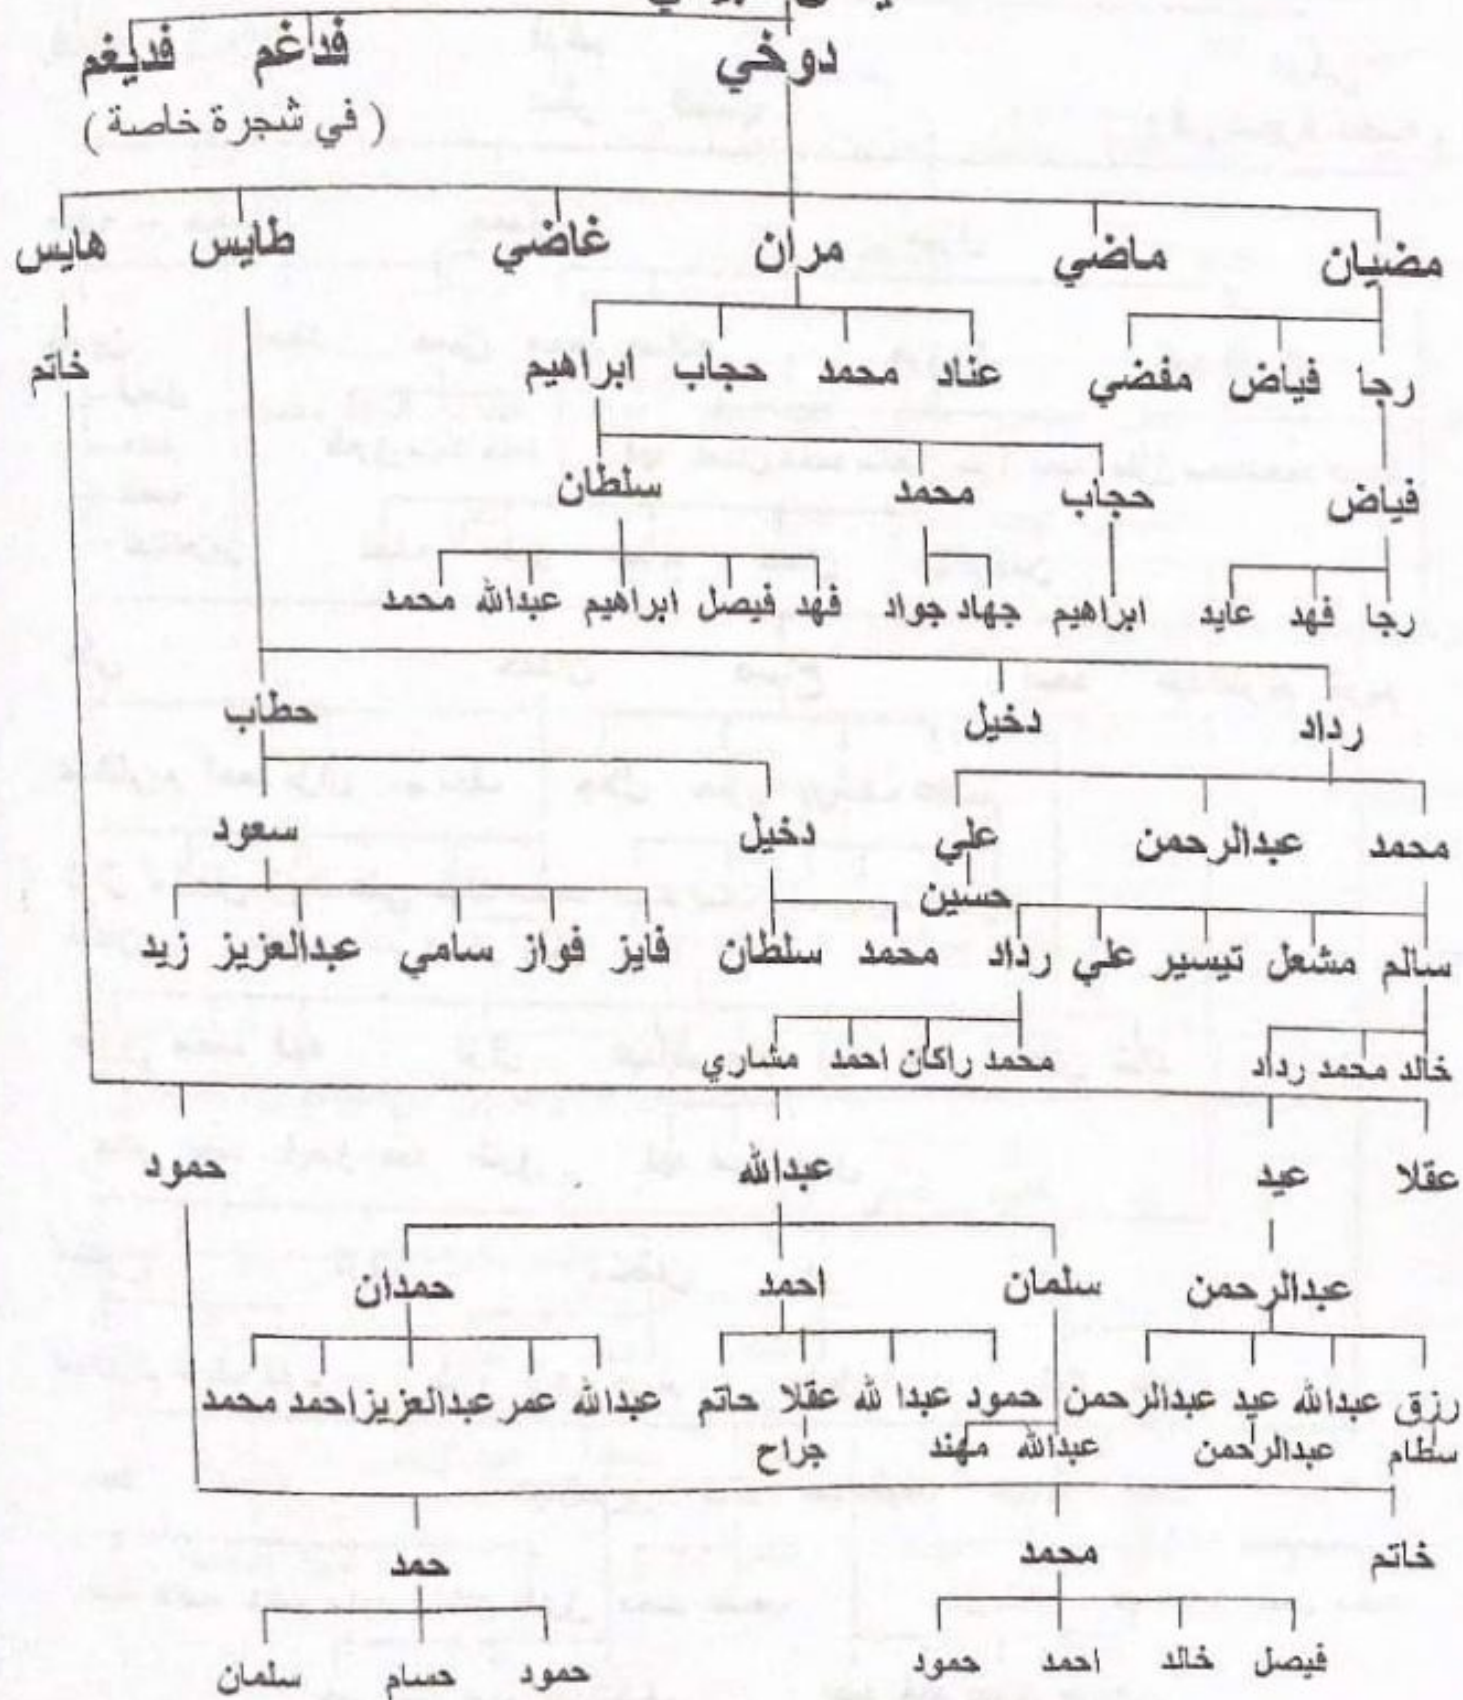 دوخي فداغم فديغم
( في شجرة خاصة )
مضيان ماضي مران غاضي طايس هايس
رجا فياض مفضي عناد محمد حجاب ابراهيم خاتم
فياض حجاب محمد سلطان
رجا فهد عايد ابراهيم جهاد جواد فهد فيصل ابراهيم عبدالله محمد
رداد دخيل حطاب
محمد عبدالرحمن علي دخيل سعود
حسين
سالم مشعل تيسير علي رداد محمد سلطان فايز فواز سامي عبدالعزيز زيد
خالد محمد رداد محمد راكان احمد مشاري
عقلا عيد عبدالله حمود
عبدالرحمن سلمان احمد حمدان
رزق عبدالله عيد عبدالرحمن حمود عبدا لله عقلا حاتم عبدالله عمر عبدالعزيز احمد محمد
سطام عبدالرحمن عبدالله مهند جراح
خاتم محمد حمد
فيصل خالد احمد حمود حمود حسام سلمان